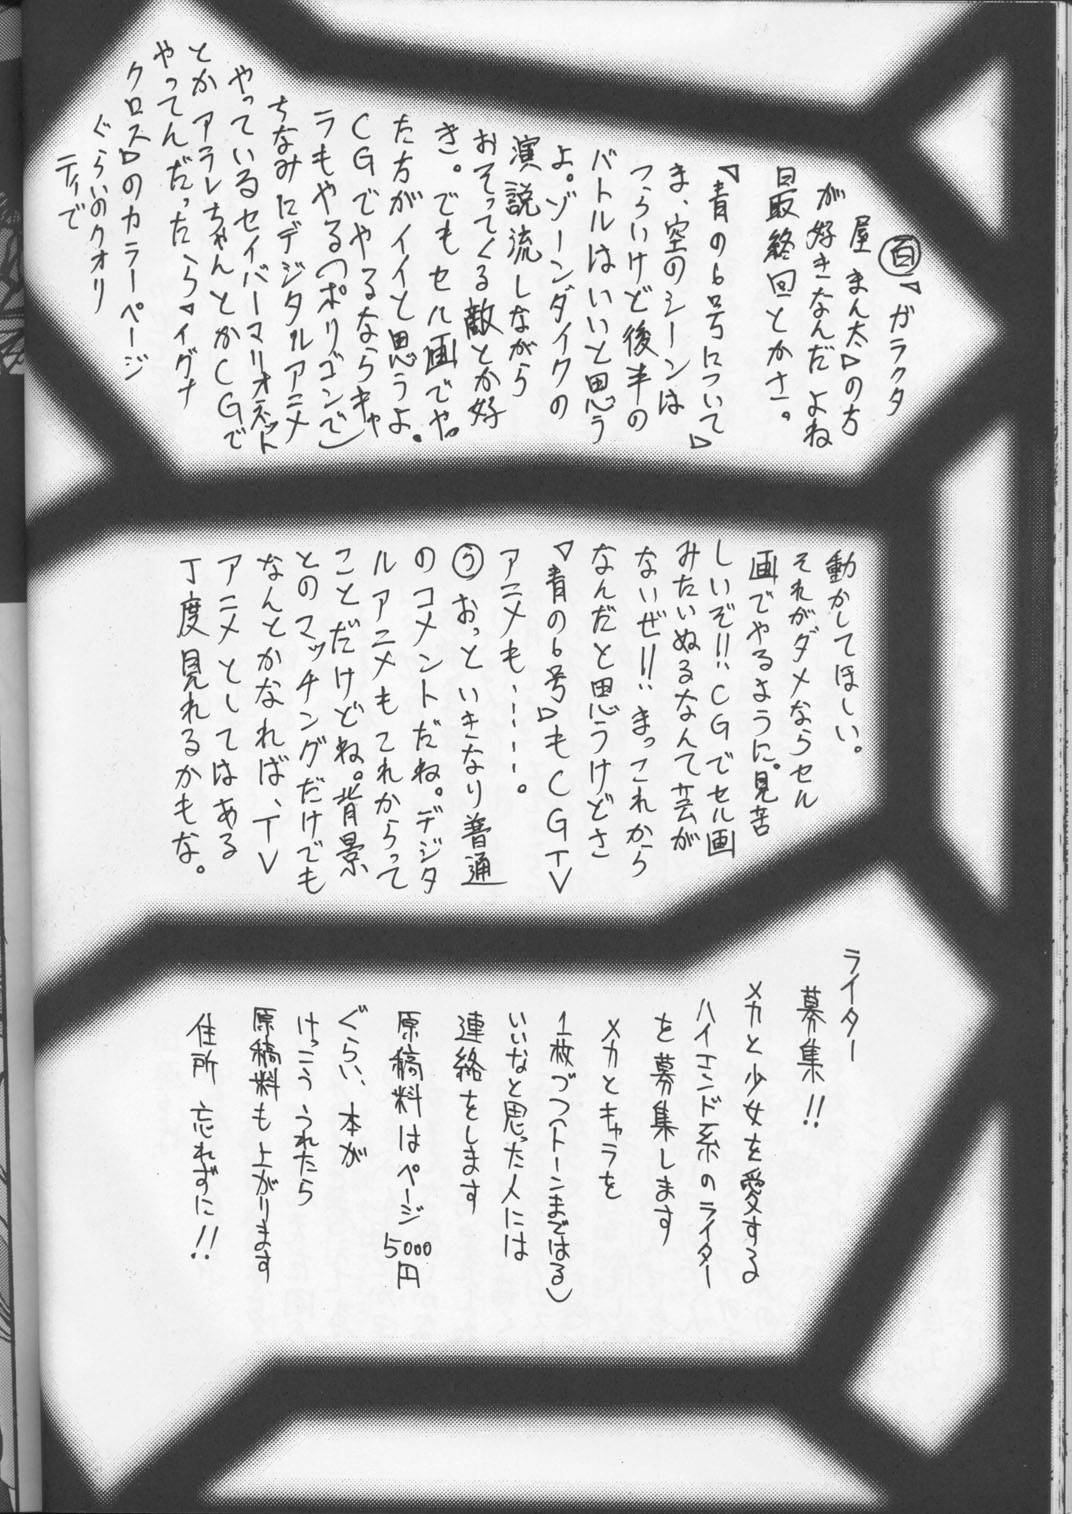 百「ガラクタ
屋まん太」の方
が好きなんだよね
最終回とかさ。
「青の6号について」
ま、空のシーンは
つらいけど後半の
バトルはいいと思う
よ。ゾーンダイクの
演説流しながら
おそってくる敵とか好
き。でもセル画でや
た方がイイと思うよ。
CGでやるならキャ
ラもやる(ポリゴンで)
ちなみにデジタルアニメ
やっているセイバーマリオネット
とかアラレちゃんとかCGで
やってんだったら「イグナ
クロス」のカラーページ
ぐらいのクォリ
ティで
動かしてほしい。
それがダメならセル
画でやるように。見苦
しいぞ!!CGでセル画
みたいぬるなんて芸が
ないぜ!!まっこれから
なんだと思うけどさ
「青の6号」もCGTV
アニメも……。
う おっといきなり普通
のコメントだね。デジタ
ルアニメもこれからって
ことだけどね。背景
とのマッチングだけでも
なんとかなれば、TV
アニメとしてはある
丁度見れるかもな。
ライター
募集!!
メカと少女を愛する
ハイエンド系のライター
を募集します
メカとキャラを
1枚づつ(トーンまではる)
いいなと思った人には
連絡をします
原稿料はページ
5000円
ぐらい、本が
けっこううれたら
原稿料も上がります
住所忘れずに!!